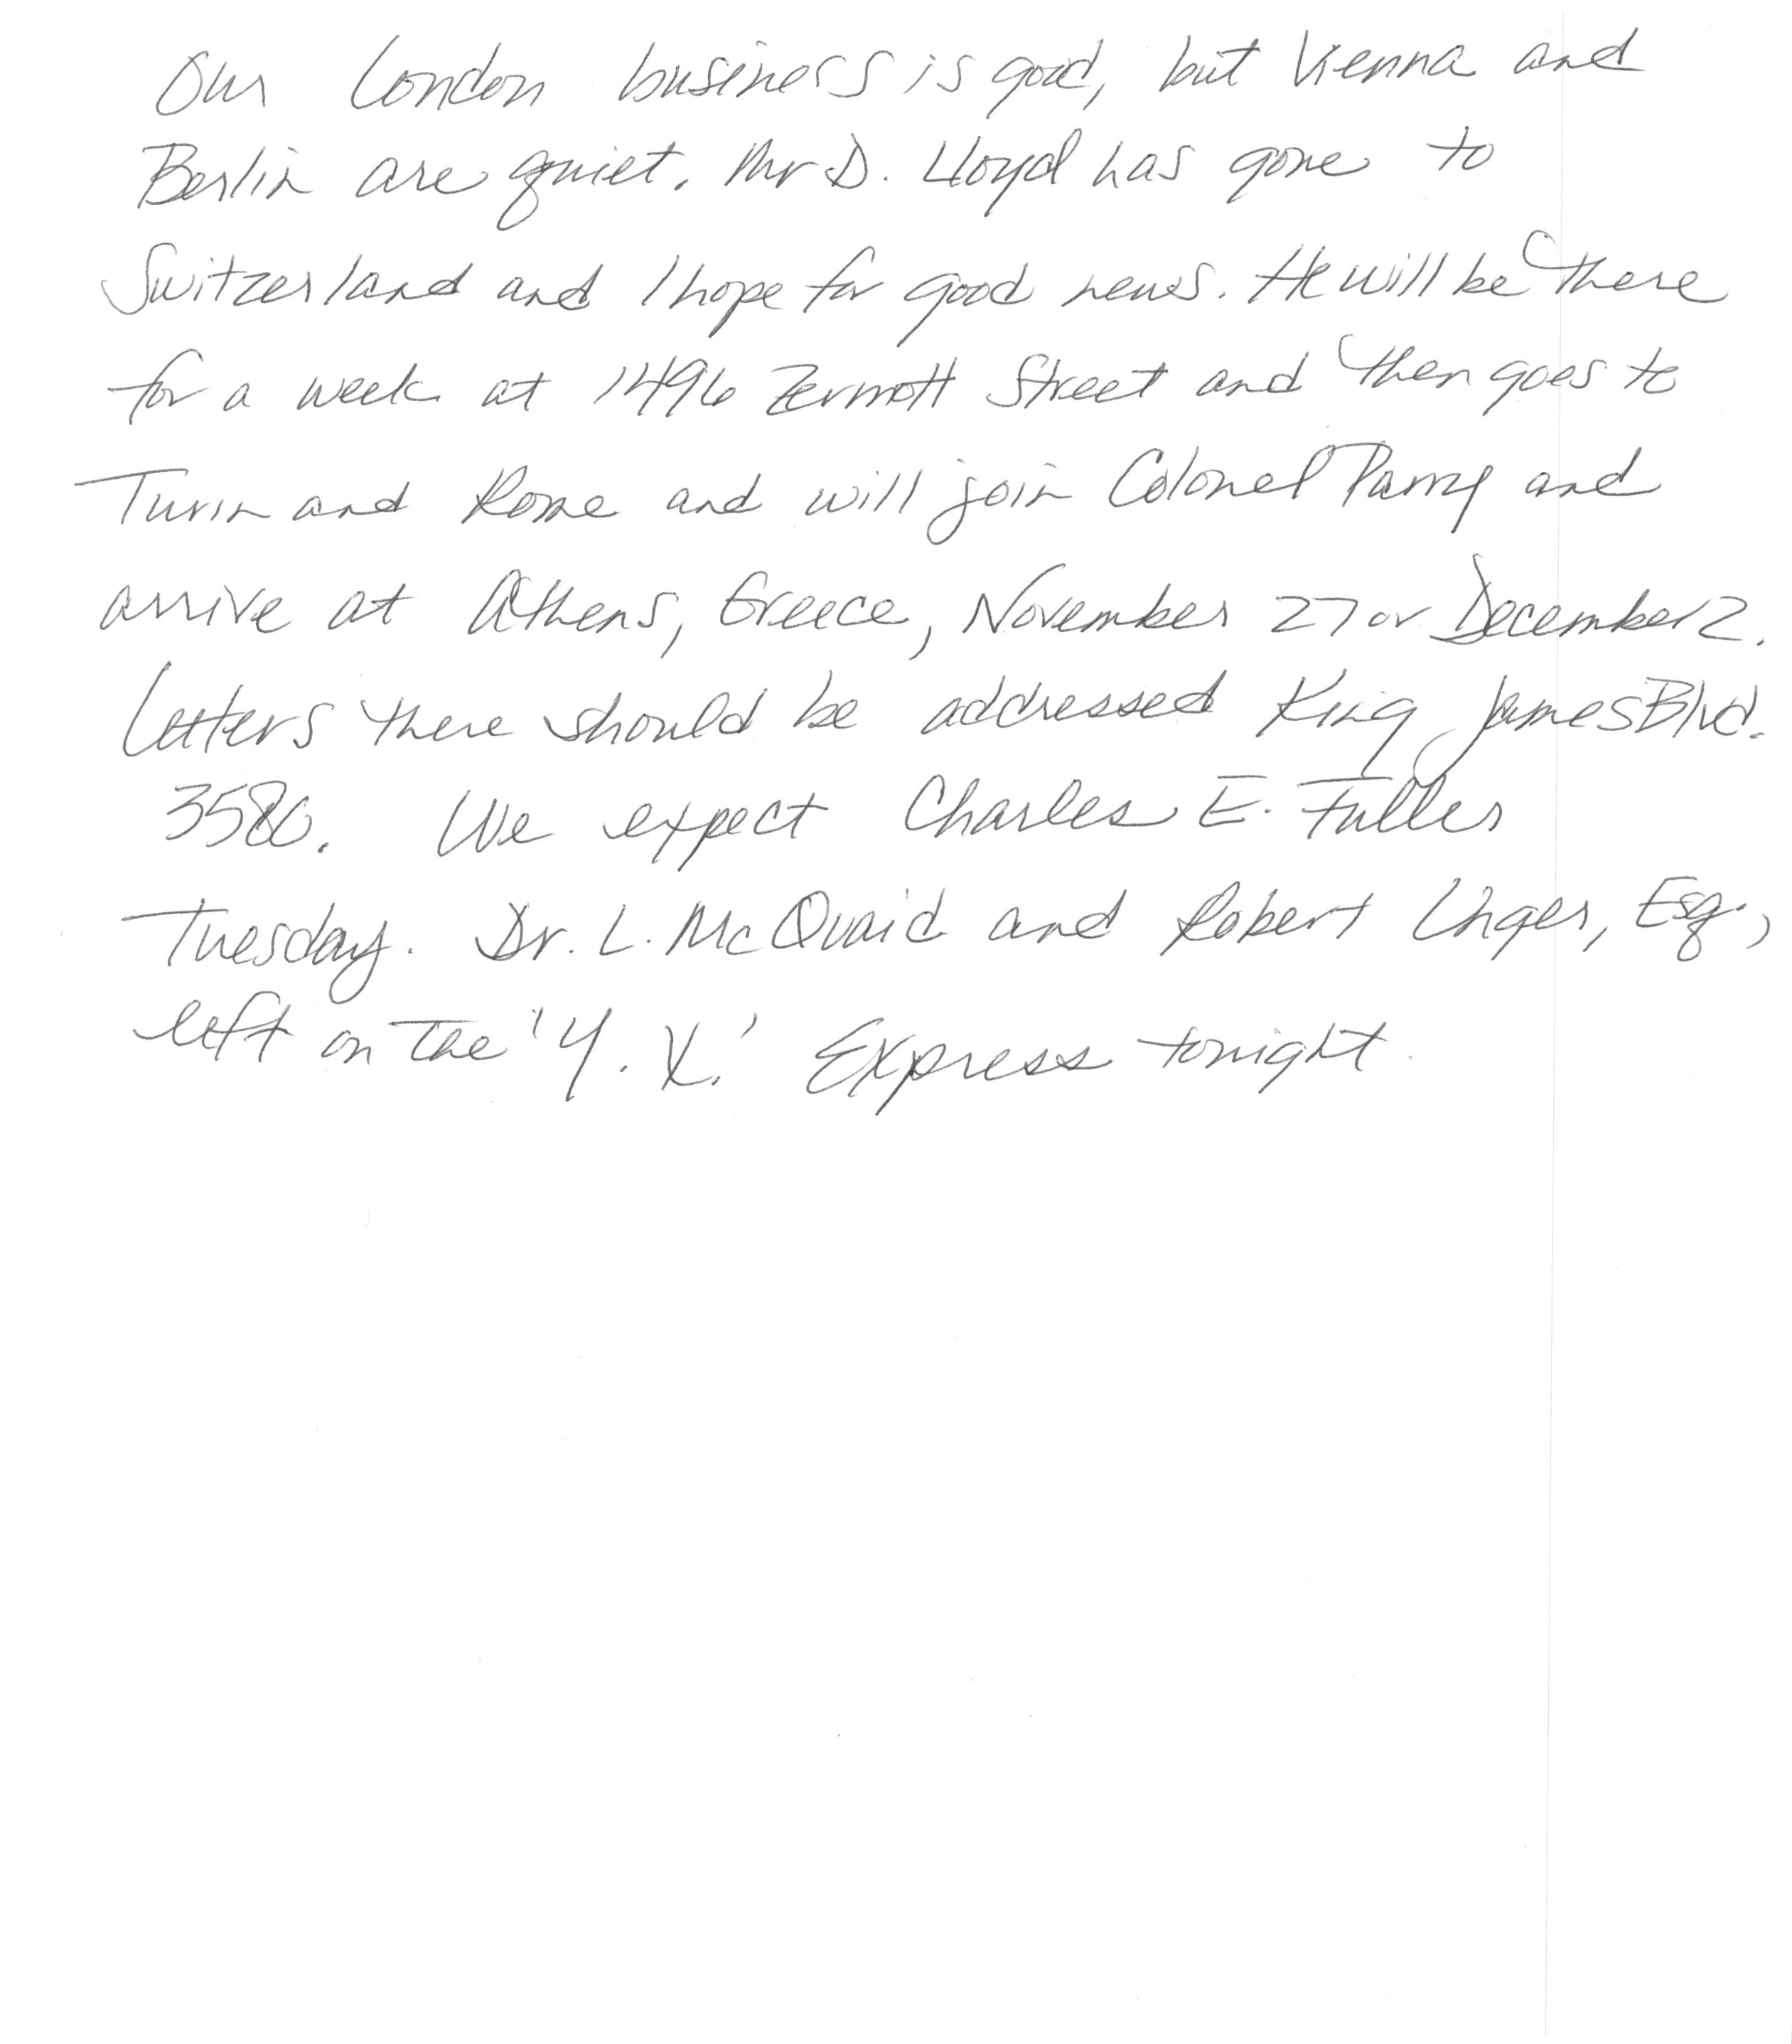 Our London business is good, but Vienna and
Berlin are quiet. Mr D. Lloyd has gone to
Switzerland and I hope for good news. He will be there
for a week at 1496 Zermott Street and then goes to
Turin and Rome and will join Colonel Parry and
arrive at Athens, Greece, November 27 or December 2.
Letters there should be addressed King James Blvd.
3580. We expect Charles E. Fuller
Tuesday. Dr. L. McQuaid and Robert Unger, Esq.,
left on the 'Y. X.' Express tonight.